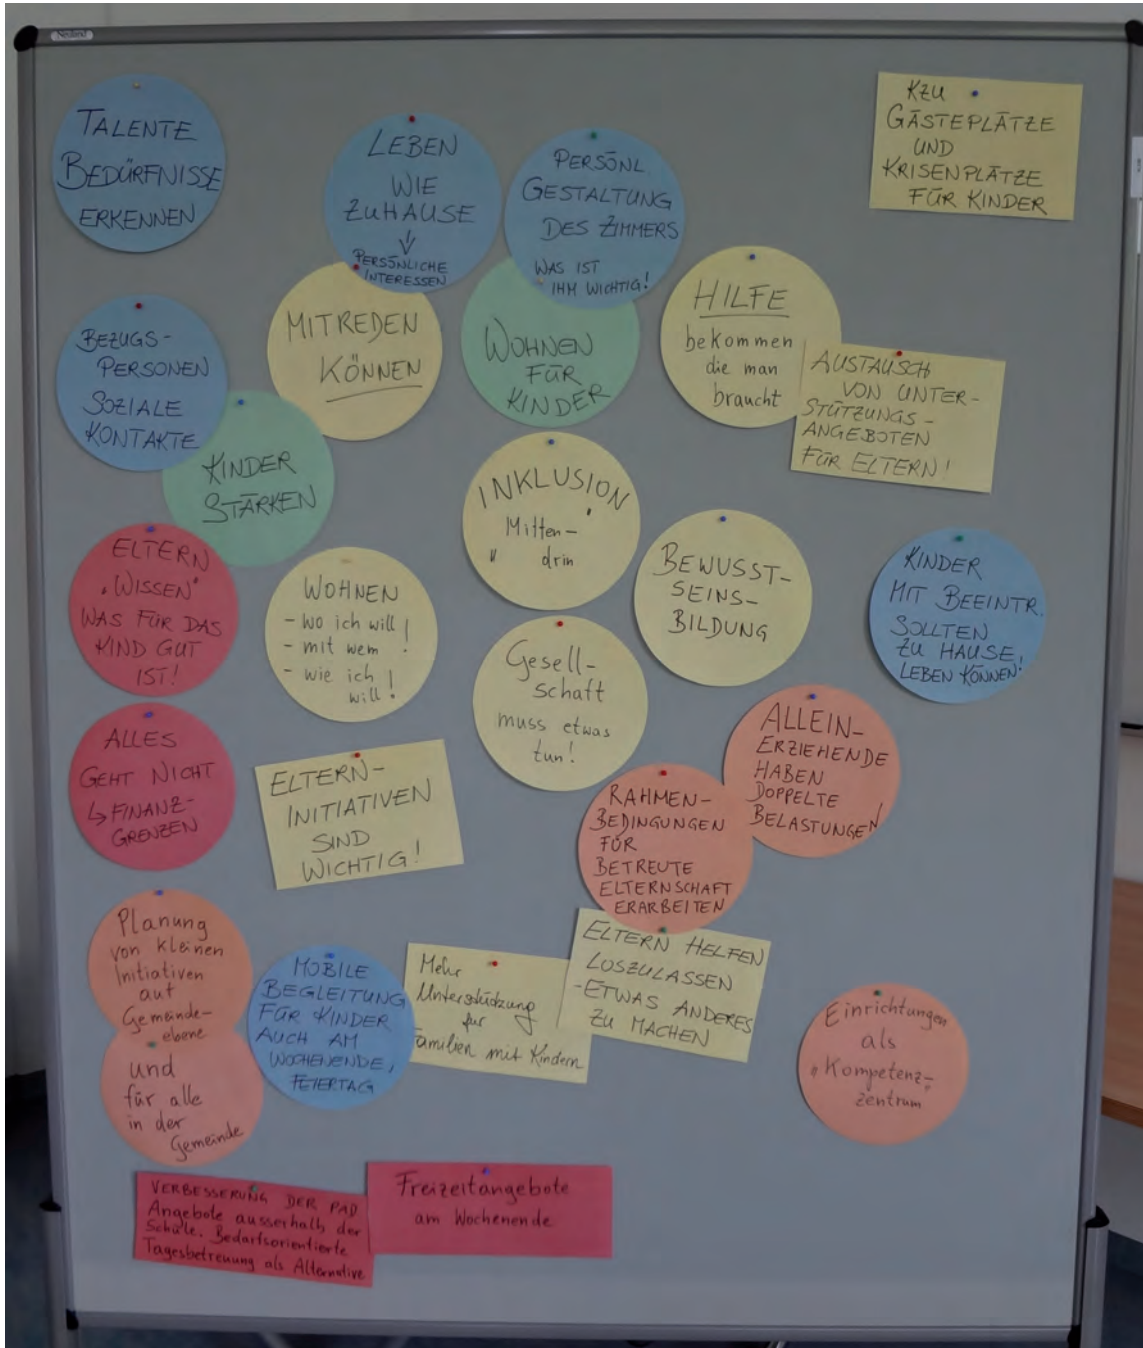 Neuland
TALENTE
BEDÜRFNISSE
ERKENNEN
LEBEN
WIE
ZUHAUSE
↓
PERSÖNLICHE
INTERESSEN
PERSÖNL
GESTALTUNG
DES ZIMMERS
WAS IST
IHM WICHTIG!
KZU
GÄSTEPLÄTZE
UND
KRISENPLÄTZE
FÜR KINDER
BEZUGS-
PERSONEN
SOZIALE
KONTAKTE
MITREDEN
KÖNNEN
WOHNEN
FÜR
KINDER
HILFE
bekommen
die man
braucht
AUSTAUSCH
VON UNTER-
STÜTZUNGS-
ANGEBOTEN
FÜR ELTERN!
KINDER
STÄRKEN
INKLUSION
Mitten-"
" drin
ELTERN
"WISSEN"
WAS FÜR DAS
KIND GUT
IST!
WOHNEN
- wo ich will!
- mit wem
- wie ich
will!
BEWUSST-
SEINS-
BILDUNG
KINDER
MIT BEEINTR.
SOLLTEN
ZU HAUSE
LEBEN KÖNNEN!
Gesell-
schaft
muss etwas
tun!
ALLES
GEHT NICHT
↳ FINANZ-
GRENZEN
ELTERN-
INITIATIVEN
SIND
WICHTIG!
ALLEIN-
ERZIEHENDE
HABEN
DOPPELTE
BELASTUNGEN!
RAHMEN-
BEDINGUNGEN
FÜR
BETREUTE
ELTERNSCHAFT
ERARBEITEN
Planung
von kleinen
Initiativen
auf
Gemeinde-
ebene
und
für alle
in der
Gemeinde
MOBILE
BEGLEITUNG
FÜR KINDER
AUCH AM
WOCHENENDE,
FEIERTAG
Mehr
Unterstützung
für
Familien mit Kindern
ELTERN HELFEN
LOSZULASSEN
- ETWAS ANDERES
ZU MACHEN
Einrichtungen
als
"Kompetenz-"
zentrum
VERBESSERUNG DER PAD
Angebote ausserhalb der
Schule. Bedarfsorientierte
Tagesbetreuung als Alternative
Freizeitangebote
am Wochenende